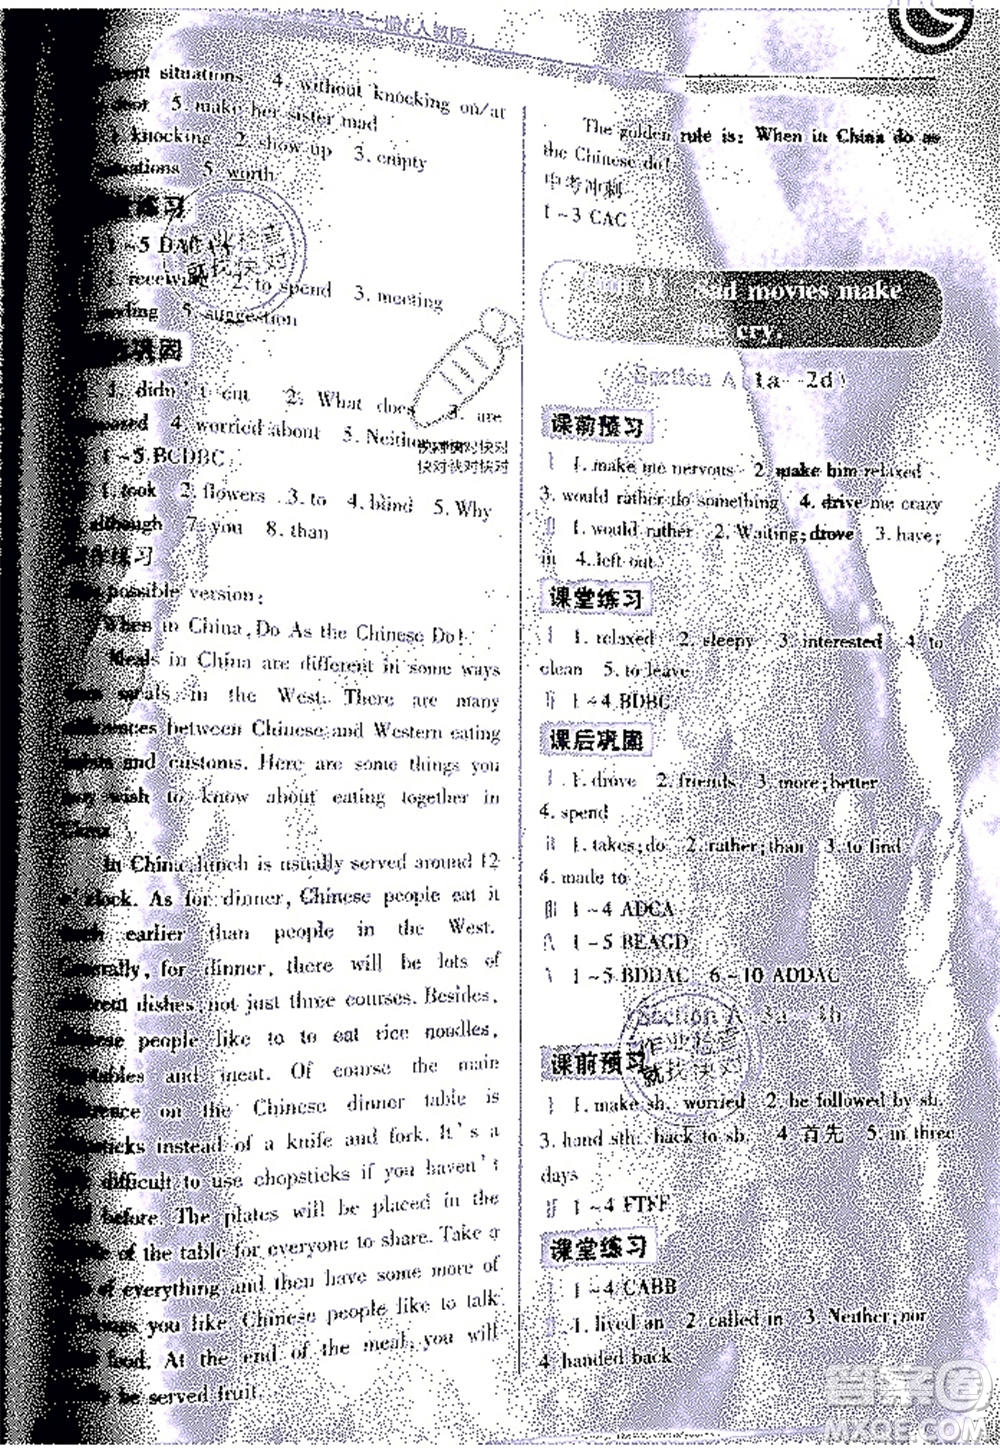 situations 4. without knocking on/at
5. make her sister mad
knocking 2. show up 3. empty
5. worth
练习
1～5
receiving 2. to spend 3. meeting
5. suggestion
巩固
1. didn't cut 2. What does 3. are
4. worried about 5. Neither
1～5 BCDBC
1. took 2. flowers 3. to 4. blind 5. Why
although 7. you 8. than
练习
possible version:
When in China, Do As the Chinese Do!
Meals in China are different in some ways
meals in the West. There are many
differences between Chinese and Western eating
habits and customs. Here are some things you
may wish to know about eating together in
China.
In China, lunch is usually served around 12
o'clock. As for dinner, Chinese people eat it
much earlier than people in the West.
Generally, for dinner, there will be lots of
different dishes, not just three courses. Besides,
Chinese people like to to eat rice noodles,
vegetables and meat. Of course the main
difference on the Chinese dinner table is
chopsticks instead of a knife and fork. It's a
difficult to use chopsticks if you haven't
before. The plates will be placed in the
of the table for everyone to share. Take a
of everything and then have some more of
things you like. Chinese people like to talk
food. At the end of the meal, you will
be served fruit.
The golden rule is: When in China do as
the Chinese do!
中考冲刺
1～3 CAC
Unit 11 Sad movies make
me cry.
Section A (1a—2d)
课前预习
1. make me nervous 2. make him relaxed
3. would rather do something 4. drive me crazy
1. would rather 2. Waiting; drove 3. have;
in 4. left out
课堂练习
1. relaxed 2. sleepy 3. interested 4. to
clean 5. to leave
1～4 BDBC
课后巩固
1. drove 2. friends 3. more; better
4. spend
1. takes; do 2. rather; than 3. to find
4. made to
1～4 ADCA
1～5 BEAGD
1～5 BDDAC 6～10 ADDAC
Section A 3a—3b
课前预习
1. make sb. worried 2. be followed by sb.
3. hand sth. back to sb. 4. 首先 5. in three
days
1～4 FTFF
课堂练习
1～4 CABB
1. lived an 2. called in 3. Neither; nor
4. handed back
作业检查
就找快对
快对快对快对
答案圈
MXQE.COM